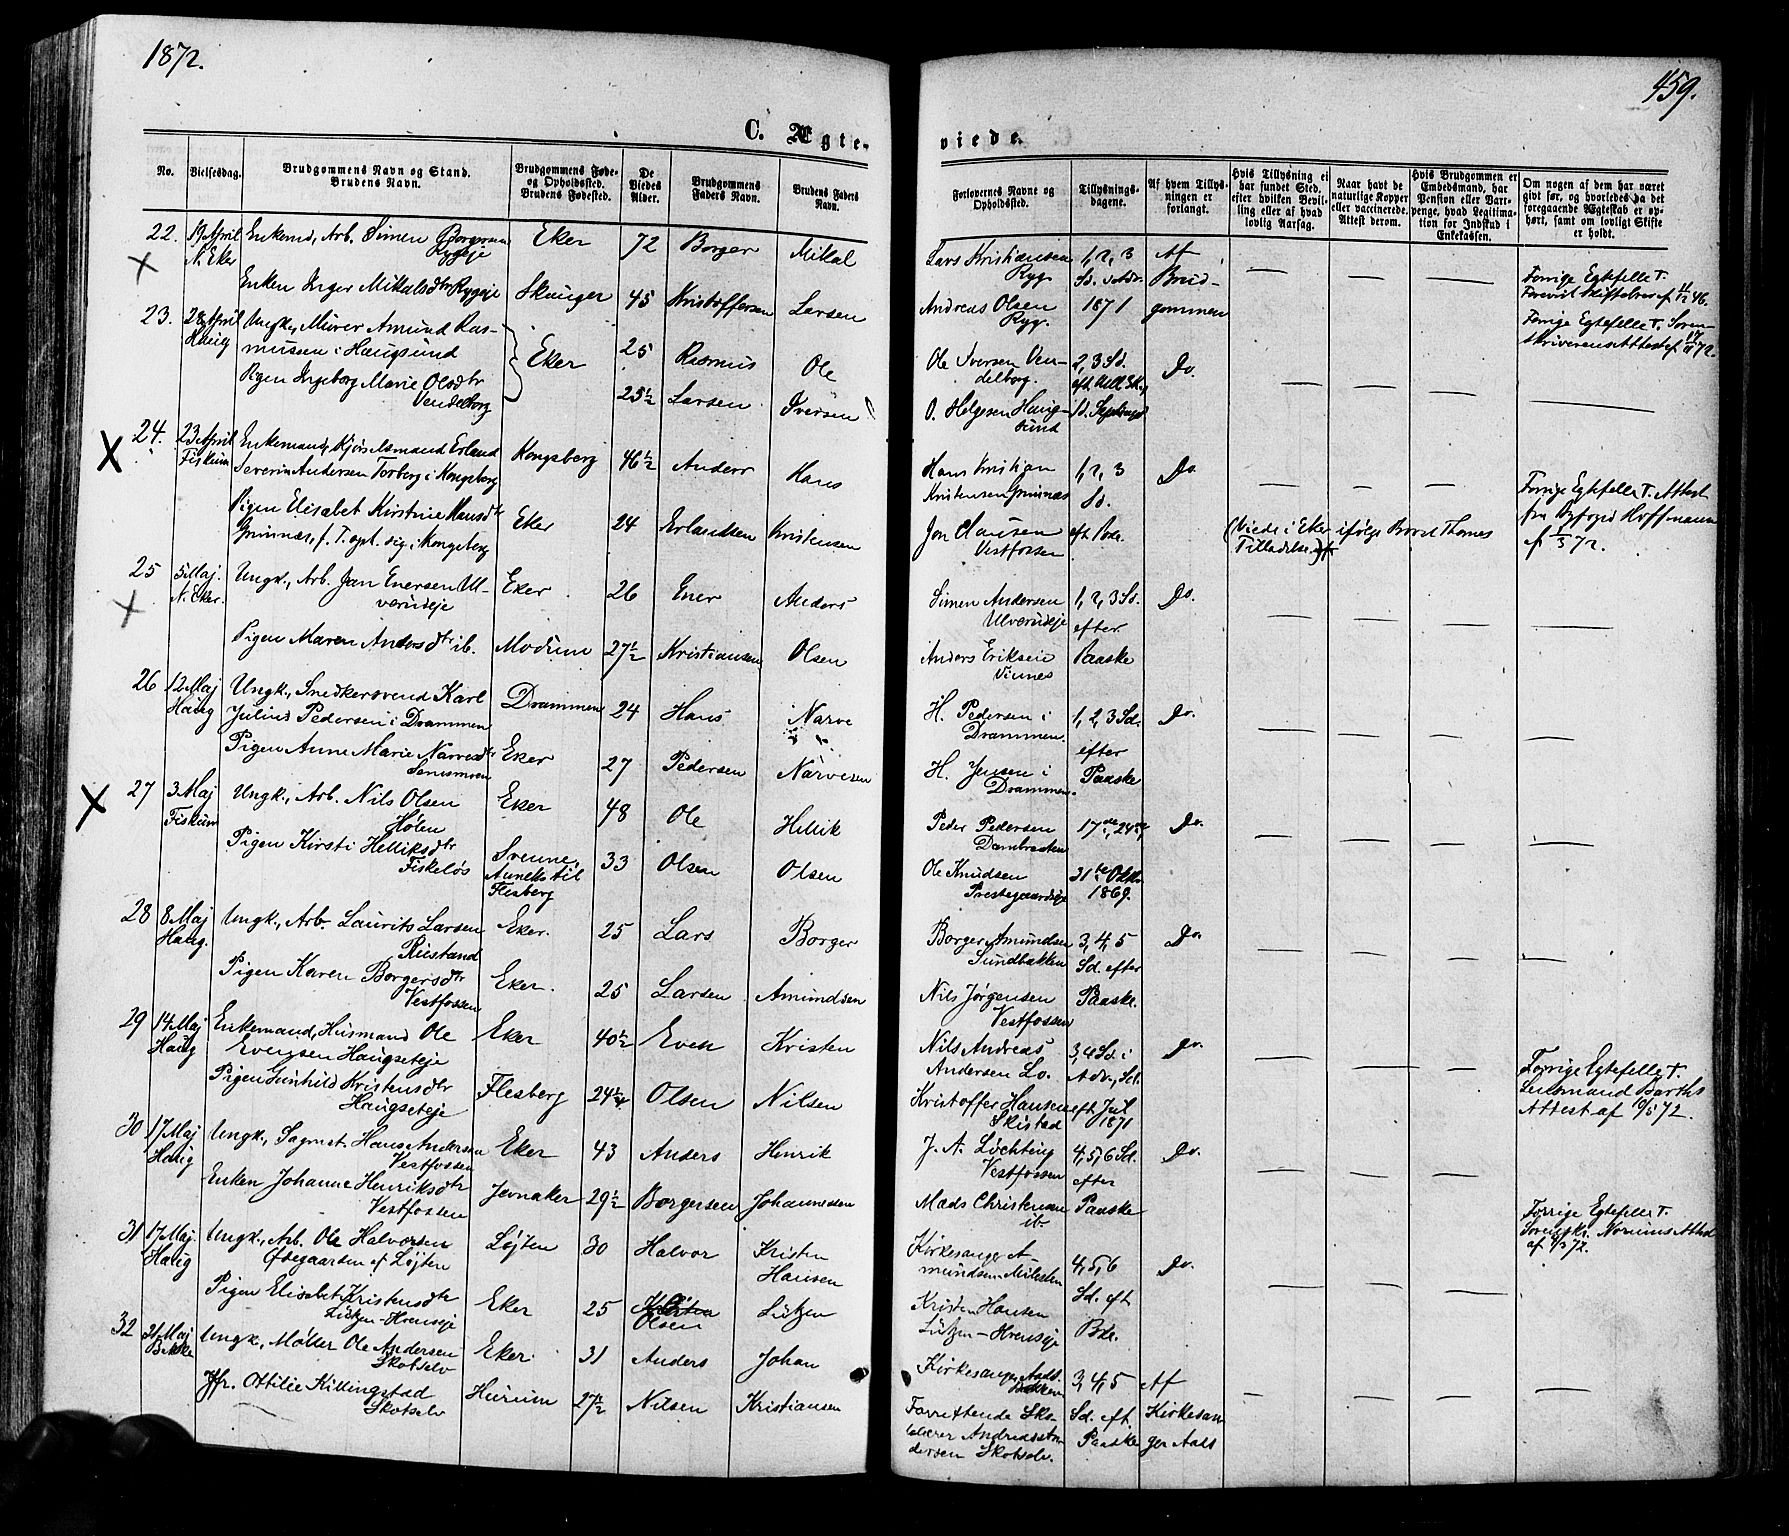 1872.
459.
C. Ægte-
viede.
No.
Vielsesdag.
Brudgommens Navn og Stand.
Brudens Navn.
Brudgommens Føde-
og Opholdssted.
Brudens Fødested.
De
Viedes
Alder.
Brudgommens
Faders Navn.
Brudens Faders
Navn.
Forlovernes Navne og
Opholdssted.
Tillysnings-
dagene.
Af hvem Tillys-
ningen er
forlangt.
Hvis Tillysning ei
har fundet Sted,
efter hvilken Bevil-
ling eller af hvad
lovlig Aarsag.
Naar havt de
naturlige Kopper
eller vaccinerede.
Attest derom.
Hvis Brudgommen er
Embedsmand, har
Pension eller Vart-
penge, hvad Legitima-
tion for Indskud i
Enkekassen.
Om nogen af dem har været
givt før, og hvorledes da det
foregaaende Ægteskab er op-
hørt, samt om lovligt Skifte
er holdt.
22. 19 April
N. Eker
Enkemd, Arb. Simen Borgersen
Rygeje
Eker 72 Borger Mikkal
Enken Inger Mikalsdtr Rygeje
Skauger 45 Kristoffersen Larsen
Lars Kristiansen
Ryg
Andreas Olsen
Ryg.
1, 2, 3
Sd. i Adv.
1871
Af
Brud-
gommen
Forrige Egtefelle †.
23. 28 April
Haug
Ungk., Murer Amund Ras-
mussen i Haugsund
Pigen Ingeborg Marie Olsdtr
Vendelborg
Eker 25 Rasmus Ole
25½ Larsen Iversen
Ole Iversen Ven-
delborg.
O. Helgesen Haug-
sund
2, 3 Sd.
Do.
24. 23 April
Fiskum
Enkemand, Kjøbsmand Erland
Severin Andersen Torberg i Kongsberg
Kongsberg 46½ Anders Hans
Pigen Elisabet Kirstine Hansdtr
Grinnæs, f. T. oph. sig i Kongsberg
Eker 24 Erlandsen Kristensen
Hans Kristian
Kristensen Grinnæs
Jon Clausen
Vestfossen
1, 2, 3
Sd.
Do.
(Viede i Eker ifølge Provst Thomes
Tilladelse)
Forrige Egtefelle †. Attest
fra Byfogd Hoffmann
af 1/3 72.
25 5 Maj.
N. Eker.
Ungk., Arb. Jan Enersen Ul-
verudeje
Eker 26 Ener Anders
Pigen Maren Andersdtr ib. Modum 27½ Kristiansen Olsen
Simen Andersen
Ulverudeje
Anders Eriksen
Vinnes
1, 2, 3 Sd.
efter
Paaske
Do.
26 12 Maj
Haug
Ungk., Snedkersvend Karl
Julius Pedersen i Drammen
Drammen 24 Hans Narve
Pigen Anne Marie Narvesdtr
Eker 27 Pedersen Narvesen
H. Pedersen i
Drammen.
H. Jensen i
Drammen.
1, 2, 3 Sd.
efter
Paaske
Do.
27 3 Maj
Fiskum
Ungk., Arb. Nils Olsen
Hølen
Eker 48 Ole Hellik
Pigen Kirsti Helliksdtr
Fiskeløs
Svenne,
Anneks til
Flesberg
33 Olsen Olsen
Peder Pedersen
Dambraaten
Ole Knudsen
Prestegaardseje
17de, 24de,
31te Oktbr
1869.
Do.
28 8 Maj
Haug.
Ungk., Arb. Laurits Larsen
Riistand
Eker. 25 Lars Borger
Pigen Karen Borgersdtr
Vestfossen
Eker. 25 Larsen Amundsen
Borger Amundsen
Sundbakken
Nils Jørgensen
Vestfossen
3, 4, 5
Sd. efter
Paaske.
Do.
29 14 Maj
Haug
Enkemand, Husmand Ole
Evensen Haugseteje
Eker 40½ Even Kristen
Pigen Gunhild Kristensdtr
Haugseteje
Flesberg 24½ Olsen Nilsen
Nils Andreas
Andersen Lo.
Kristoffer Hansen
Skistad
3, 4 Sd. i
Adv., Sd.
eft Jul
1871
Do.
Forrige Egtefelle †.
Lensmand Barths
Attest af 10/5 72.
30 17 Maj
Haug
Ungk., Sagmst. Hans Andersen
Vestfossen
Eker 43 Anders Henrik
Enken Johanne Henriksdtr
Vestfossen
Jevnaker 29½ Borgersen Johannesen
J. A. Løchting
Vestfossen
Mads Christensen
ib.
4, 5, 6 Sd.
efter
Paaske
Do.
Forrige Egtefelle †.
31 17 Maj.
Haug
Ungk., Arb. Ole Halvorsen
Ødegaarden af Løjten
Løjten 30 Halvor Kristen
Hansen
Pigen Elisabet Kristensdtr
Lützen-Hrenseje
Eker 25 Olsen Lützen
Kirkesanger A-
mundsen Milesten
Kristen Hansen
Lützen-Hrenseje
4, 5, 6
Sd. eft
Do.
32 21 Maj
Bakke
Ungk., Møller Ole Andersen
Skotselv
Eker. 31 Anders Johan
Jfr. Ottilie Killingstad
Skotselv
Hurum 27½ Nilsen Kristiansen
Kirkesanger Aads
Bakken
Forrettende Sko-
lelærer Andreas An-
dersen Skotselv.
3, 4, 5
Sd. eft.
Paaske
Af
Kirkesan-
ger Aads